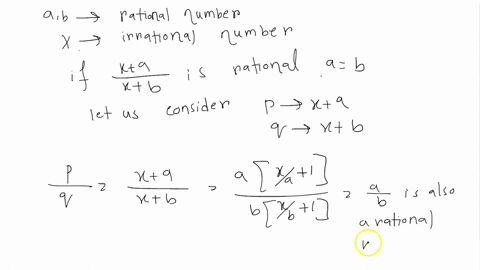 a,b → rational number
x → irrational number
if x+a / x+b is rational a = b
let us consider p → x+a
q → x+b
p/q = x+a / x+b = a[x/a+1] / b[x/b+1] = a/b is also
a rational